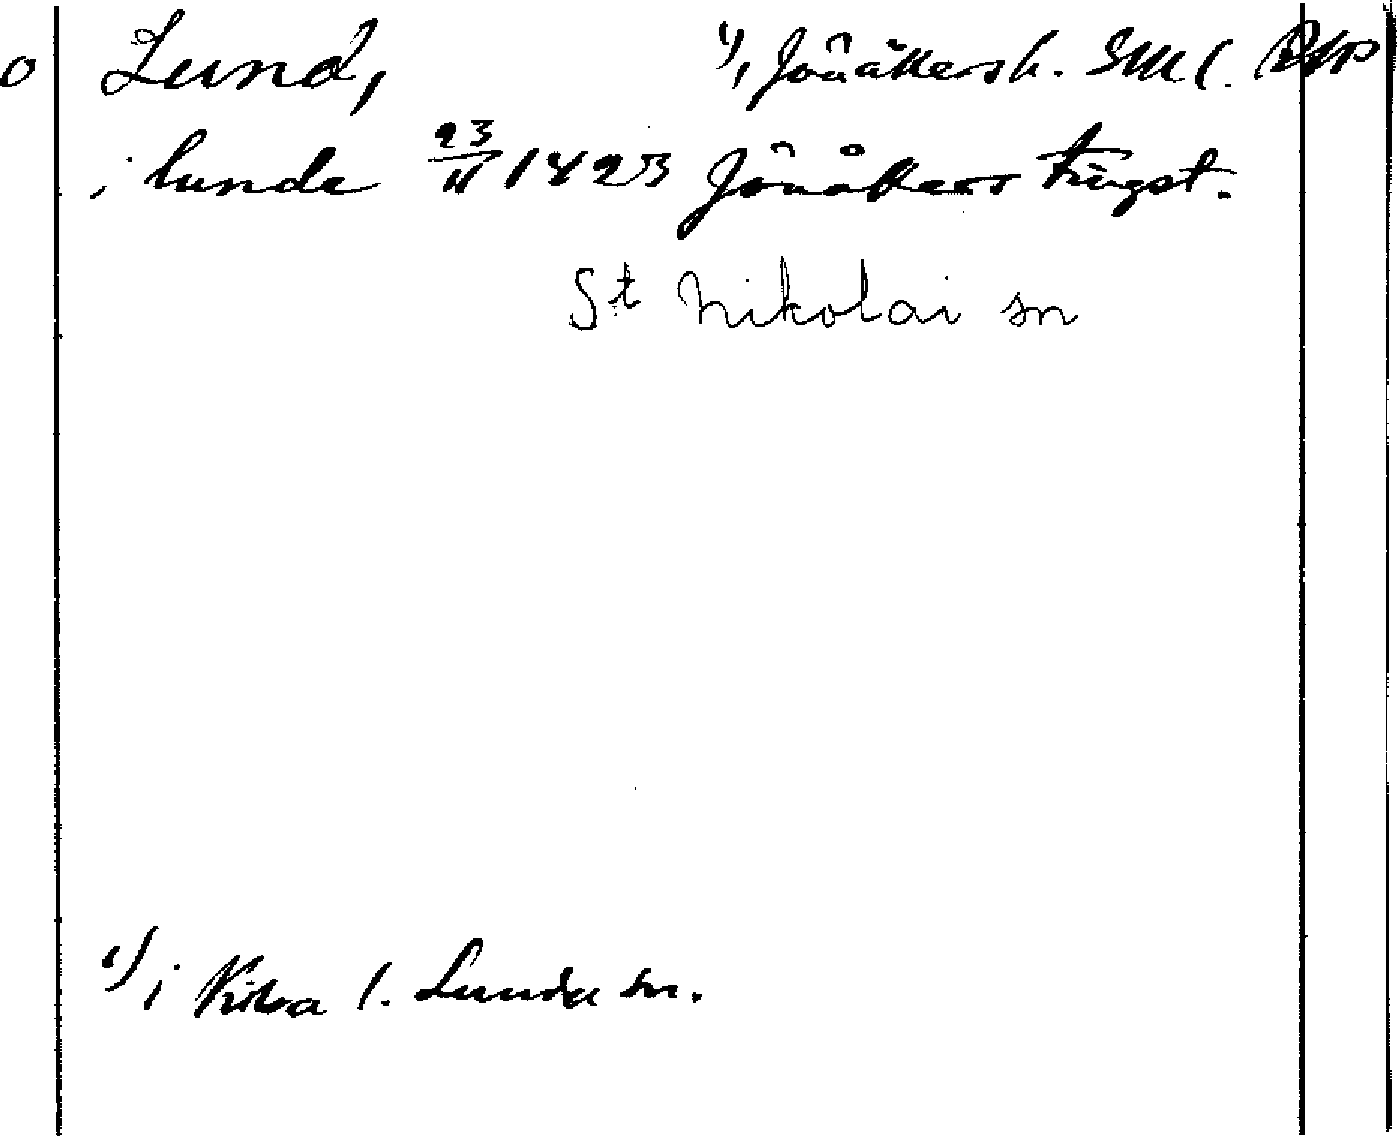 o Lund, 1), Jönåkers h. SML.
i lunde 23/11 1423 Jönåkers tingst.
St Nikolai sn
1) i Kila l. Lunda sn.